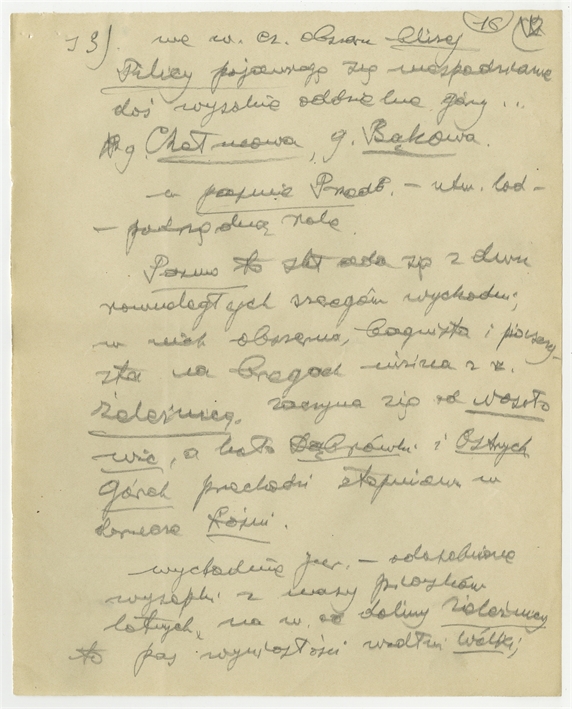 13). we w. cz. obszaru bliżej 16 12
Pilicy pojawiają się niespodziewanie
dość wysokie oddzielne góry ...
g. Chełmowa, g. Bąkowa.
w paśmie Przedb. – utw. lod –
– podrzędną rolę.
Pasmo składa się z dwu
równoległych szeregów wychodni;
w nich obszerna, bagnista i piaszczy-
sta na brzegach nizina z rz.
Żeleźnicą. Zaczyna się od Woszczo
wic, a koło Dąbrówki i Ostrych
Górek przechodzi stopniowo w
Równi.
wychodnie jur. – odosobnione
wysepki z masy piasków
lotnych, na w. od doliny Żeleźnicy
to pas wyniosłości wzdłuż Wólki;